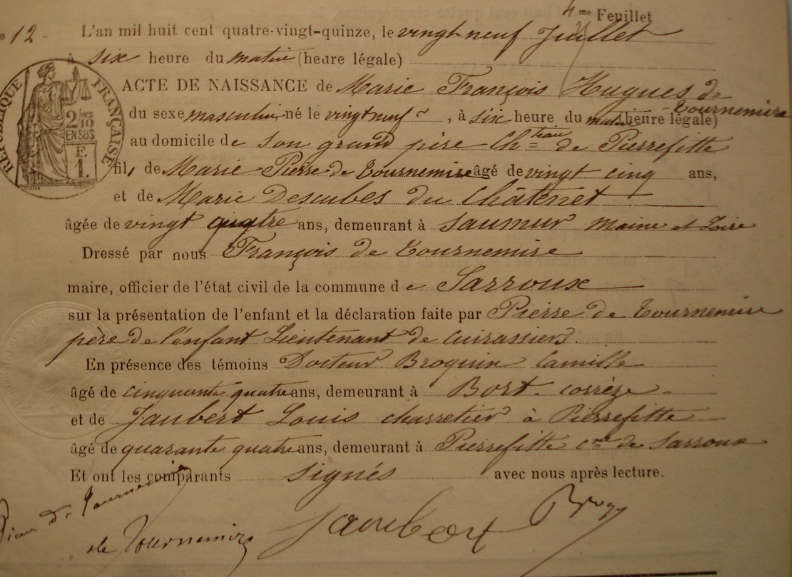 4me Feuillet
No 12
L'an mil huit cent quatre-vingt-quinze, le vingt neuf Juillet
à six heure du matin (heure légale)
ACTE DE NAISSANCE de Marie François Hugues de Tournemire
du sexe masculin né le vingt neuf, à six heure du matin (heure légale)
au domicile de son grand père Chteau de Pierrefitte
fils de Marie Pierre de Tournemire âgé de vingt cinq ans,
et de Marie Descubes du Châtenet
âgée de vingt quatre ans, demeurant à Saumur Maine et Loire
Dressé par nous François de Tournemire
maire, officier de l'état civil de la commune de Sarroux
sur la présentation de l'enfant et la déclaration faite par Pierre de Tournemire
père de l'enfant Lieutenant de cuirassiers.
En présence des témoins Docteur Broquin Camille
âgé de cinquante quatre ans, demeurant à Bort - corrèze -
et de Jaubert Louis charretier à Pierrefitte
âgé de quarante quatre ans, demeurant à Pierrefitte cne de Sarroux
Et ont les comparants signés avec nous après lecture.
de Tournemire
Jaubert
RÉPUBLIQUE FRANÇAISE
2/10 EN SUS
F. 1.